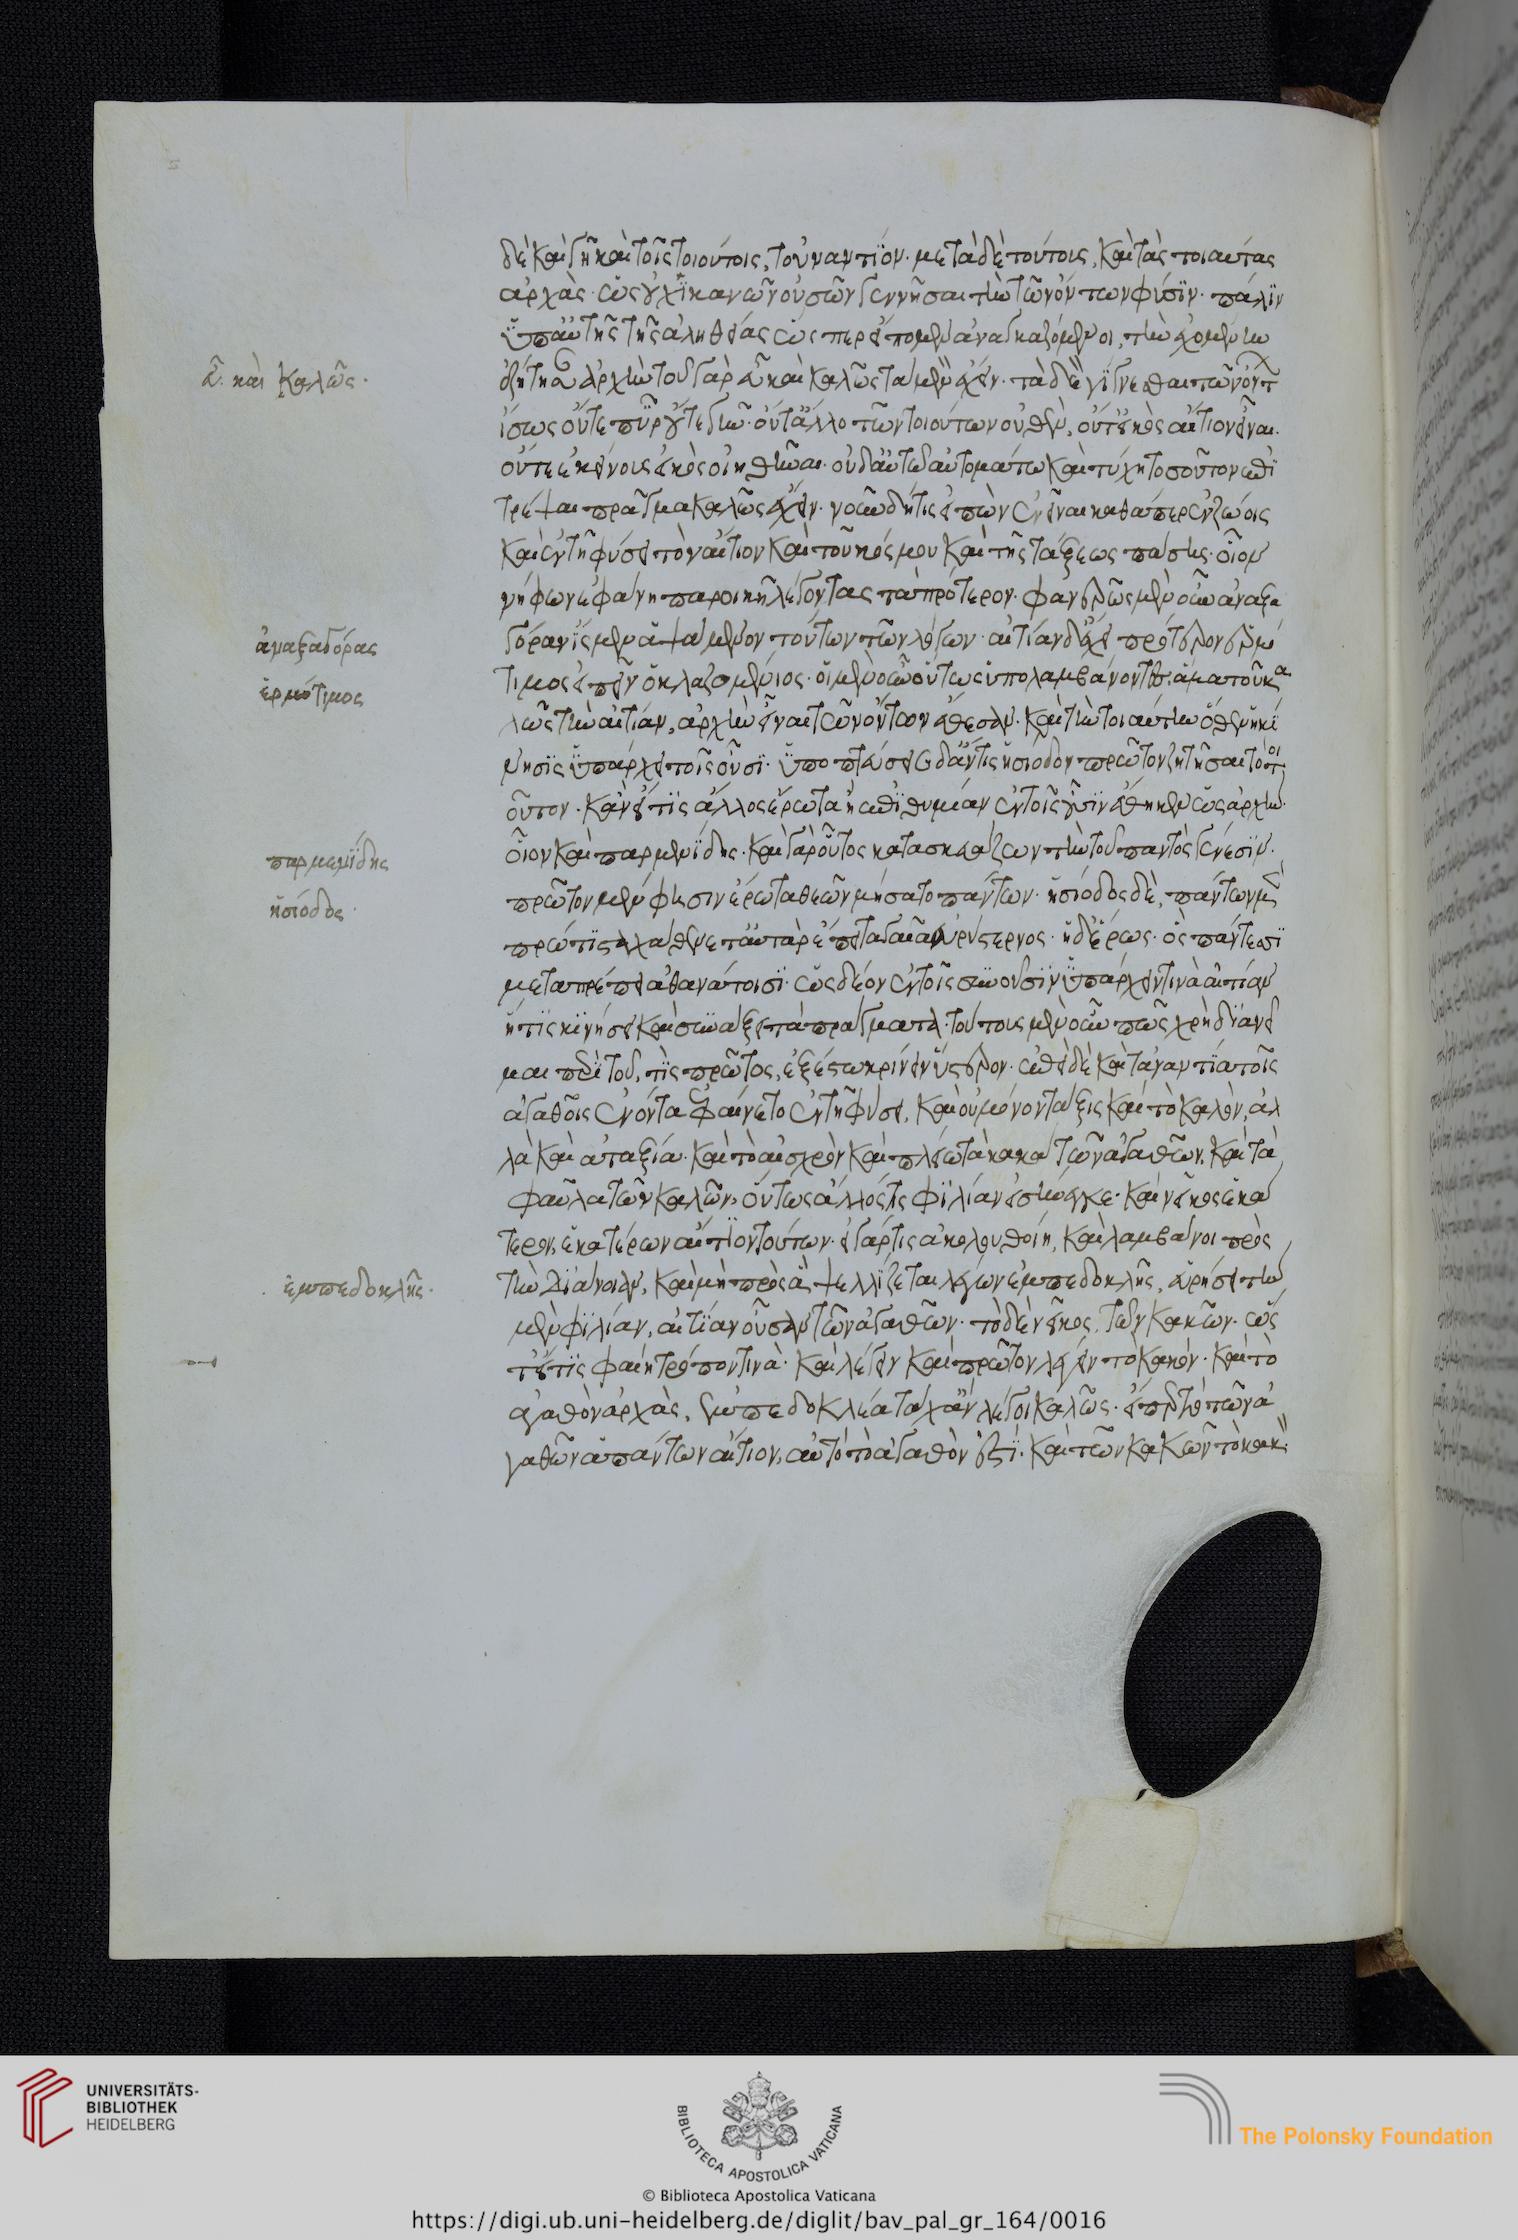 δὲ καὶ γῆ καὶ τοῖς τοιούτοις, τοὐναντίον· μετὰ δὲ τούτους, καὶ τὰς τοιαύτας
ἀρχάς· ὡς οὐχ ἱκανῶν οὐσῶν γεννῆσαι τὴν τῶν ὄντων φύσιν· πάλιν
ὑπ' αὐτῆς τῆς ἀληθείας ὥσπερ εἴπομεν ἀναγκαζόμενοι, τὴν ἐχομένην
ἐζήτησαν ἀρχὴν τοῦ γὰρ εὖ καὶ καλῶς τὰ μὲν ἔχειν· τὰ δὲ γίγνεσθαι τῶν ὄντ
εὖ· καὶ καλῶς·
ἴσως οὔτε πῦρ οὔτε γῆν· οὔτ' ἄλλο τῶν τοιούτων οὐθὲν, οὔτ' εἰκὸς αἴτιον εἶναι·
οὔτε ἐκείνους εἰκὸς οἰηθῆναι· οὐδ' αὖ τῶ αὐτομάτω καὶ τύχη τοσοῦτον ἐπι
τρέψαι πρᾶγμα καλῶς ἔχειν· νοῦν δή τις εἰπὼν ἐνεῖναι καθάπερ ἐν ζώοις
καὶ ἐν τῆ φύσει τὸν αἴτιον καὶ τοῦ κόσμου καὶ τῆς τάξεως πάσης· οἷον
νήφων ἐφάνη παρ' οἰκῆ λέγοντας τὰ πρότερον· φανερῶς μὲν οὖν ἀναξα
γόραν ἴσμεν ἁψάμενον τούτων τῶν λόγων· αἰτίαν δ' ἔχει πρότερον ἑρμό
ἀναξαγόρας
τιμος εἰπεῖν ὁ κλαζομένιος· οἱ μὲν οὖν οὕτως ὑπολαμβάνοντες ἅμα τοῦ κα
ἑρμότιμος
λῶς τὴν αἰτίαν, ἀρχὴν εἶναι τῶν ὄντων ἔθεσαν· καὶ τὴν τοιαύτην ὅθεν ἡ κί
νησις ὑπάρχει τοῖς οὖσι· ὑποπτεύσειε δ' ἄν τις ἡσίοδον πρῶτον ζητῆσαι τὸ τοι
οῦτον· κἂν εἴ τις ἄλλος ἔρωτα ἢ ἐπιθυμίαν ἐν τοῖς οὖσιν ἔθηκεν ὡς ἀρχὴν·
οἷον καὶ παρμενίδης· καὶ γὰρ οὗτος κατασκευάζων τὴν τοῦ παντὸς γένεσιν·
παρμενίδης
πρῶτον μέν φησιν ἔρωτα θεῶν μήσατο πάντων· ἡσίοδος δὲ, πάντων μὲν
ἡσίοδος·
πρώτιστα χάος γένετ' αὐτὰρ ἔπειτα γαῖα εὐρύστερνος· ἠδ' ἔρως· ὃς πάντεσσι
μεταπρέπει ἀθανάτοισι· ὡς δέον ἐν τοῖς συνοῦσιν ὑπάρχειν τινὰ αἰτίαν
ἥτις κινήσει καὶ συνάξει τὰ πράγματα· τούτους μὲν οὖν πῶς χρὴ διανεῖ
μαι περὶ τοῦ, τίς πρῶτος, ἐξέστω κρίνειν ὕστερον· ἐπεὶ δὲ καὶ τἀναντία τοῖς
ἀγαθοῖς ἐνόντα ἐφαίνετο ἐν τῆ φύσει, καὶ οὐ μόνον τάξις καὶ τὸ καλὸν, ἀλ
λὰ καὶ ἀταξία· καὶ τὸ αἰσχρὸν καὶ πλείω τὰ κακὰ τῶν ἀγαθῶν, καὶ τὰ
φαῦλα τῶν καλῶν, οὕτως ἄλλός τις φιλίαν εἰσήνεγκε· καὶ νεῖκος ἑκά
τερον, ἑκατέρων αἴτιον τούτων· εἰ γάρ τις ἀκολουθοίη, καὶ λαμβάνοι πρὸς
τὴν διάνοιαν, καὶ μὴ πρὸς ἃ ψελλίζεται λέγων ἐμπεδοκλῆς, εὑρήσει τὴν
ἐμπεδοκλῆς·
μὲν φιλίαν, αἰτίαν οὖσαν τῶν ἀγαθῶν· τὸ δὲ νεῖκος, τῶν κακῶν· ὥς
τ' εἴ τις φαίη τρόπον τινὰ· καὶ λέγειν καὶ πρῶτον λέγειν τὸ κακόν· καὶ τὸ
ἀγαθὸν ἀρχὰς, ἐμπεδοκλέα τάχ' ἂν λέγοι καλῶς· εἴπερ τὸ τῶν ἀ
γαθῶν ἁπάντων αἴτιον, αὐτὸ τὸ ἀγαθὸν ἐστί· καὶ τῶν κακῶν τὸ κακὸν
UNIVERSITÄTS-
BIBLIOTHEK
HEIDELBERG
BIBLIOTECA APOSTOLICA VATICANA
The Polonsky Foundation
© Biblioteca Apostolica Vaticana
https://digi.ub.uni-heidelberg.de/diglit/bav_pal_gr_164/0016